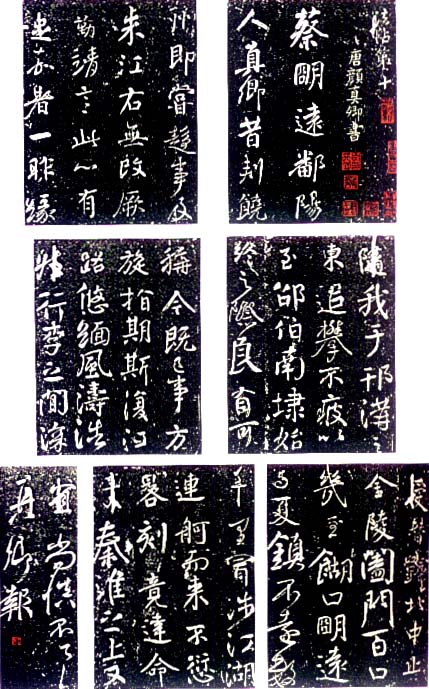 帖第十
唐顏真卿書
蔡明遠鄱陽
人真卿昔刺饒
州即嘗趨事及
來江右無改厥
勤靖言此心有
足嘉者一昨緣
隨我于邗溝之
東追攀不疲以
至邵伯南埭始
終之際良有可
稱今既已事方
旋指期斯復江
路悠緬風濤浩
然行李之間深
受替歸北中止
金陵闔門百口
幾至餬口明遠
與夏鎮不遠數
千里冒涉江湖
連舸而來不愆
晷刻竟達命
於秦淮之上又
宜尚慎不
真卿報